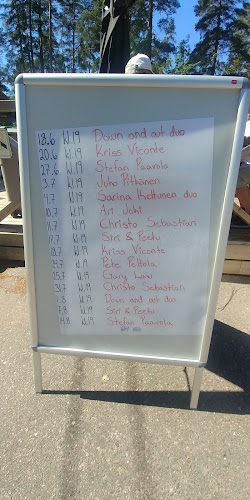 18.6 kl.19 Down and out duo
20.6 kl.19 Kriss Viconte
27.6 kl.19 Stefan Paavola
3.7 kl.19 Juho Pitkänen
4.7 kl.19 Sarina Keltunen duo
10.7 kl.19 Ari Joki
11.7 kl.19 Christo Sebastian
17.7 kl.19 Siri & Peetu
18.7 kl.19 Kriss Viconte
24.7 kl.19 Pete Peltola
25.7 kl.19 Gary Law
31.7 kl.19 Christo Sebastian
1.8 kl.19 Down and out duo
7.8 kl.19 Siri & Peetu
14.8 kl.19 Stefan Paavola